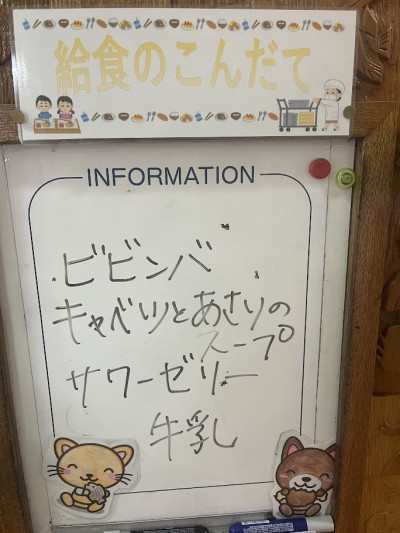 給食のこんだて
INFORMATION
ビビンバ
キャベツとあさりの
スープ
サワーゼリー
牛乳